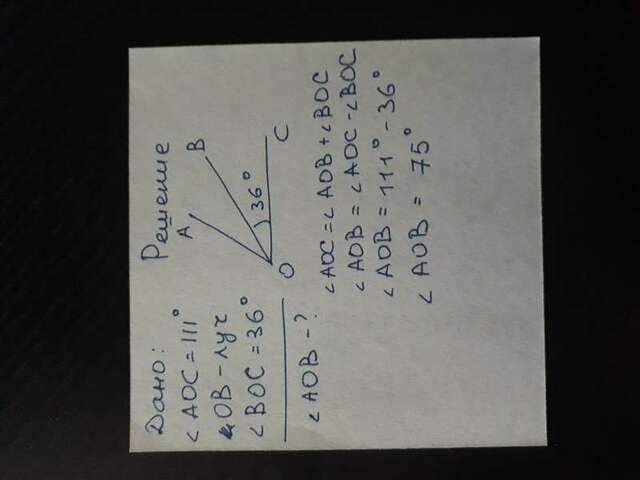 Дано:
∠AOC = 111°
OB - луч
∠BOC = 36°
∠AOB - ?
Решение
A
B
C
O
36°
∠AOC = ∠AOB + ∠BOC
∠AOB = ∠AOC - ∠BOC
∠AOB = 111° - 36°
∠AOB = 75°